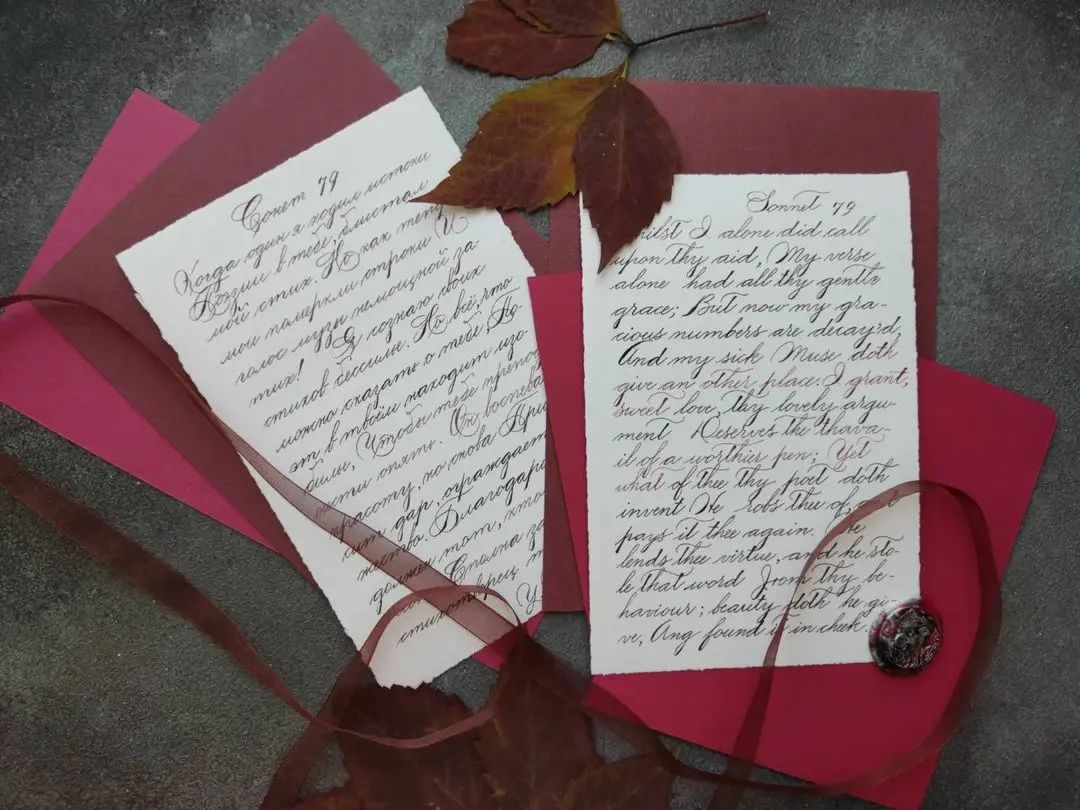 Сонет 79
Когда один я ходил истоки
Поэзии в тебе, блистал
мой стих. Но как теперь
мои померкли строки И
голос музы немощной за-
тих! Я сознаю своих
стихов бессилье. Но всё, что
можно сказать о тебе, По-
эт в твоём находит изо
билье, Чтобы тебе препод
нести опять. Он воспева
красоту, но снова При
сит дар, ограждает
жество. Благодаро
должен тот, кто
Сполна за
стихотворец
Sonnet 79
Whilst I alone did call
upon thy aid, My verse
alone had all thy gentle
grace; But now my gra-
cious numbers are decay'd,
And my sick Muse doth
give an other place. I grant,
sweet love, thy lovely argu-
ment Deserves the thava-
il of a worthier pen; Yet
what of thee thy poet doth
invent He robs thee of, and
pays it thee again. He
lends thee virtue, and he sto-
le that word From thy be-
haviour; beauty doth he gi-
ve, Ang found it in cheek.